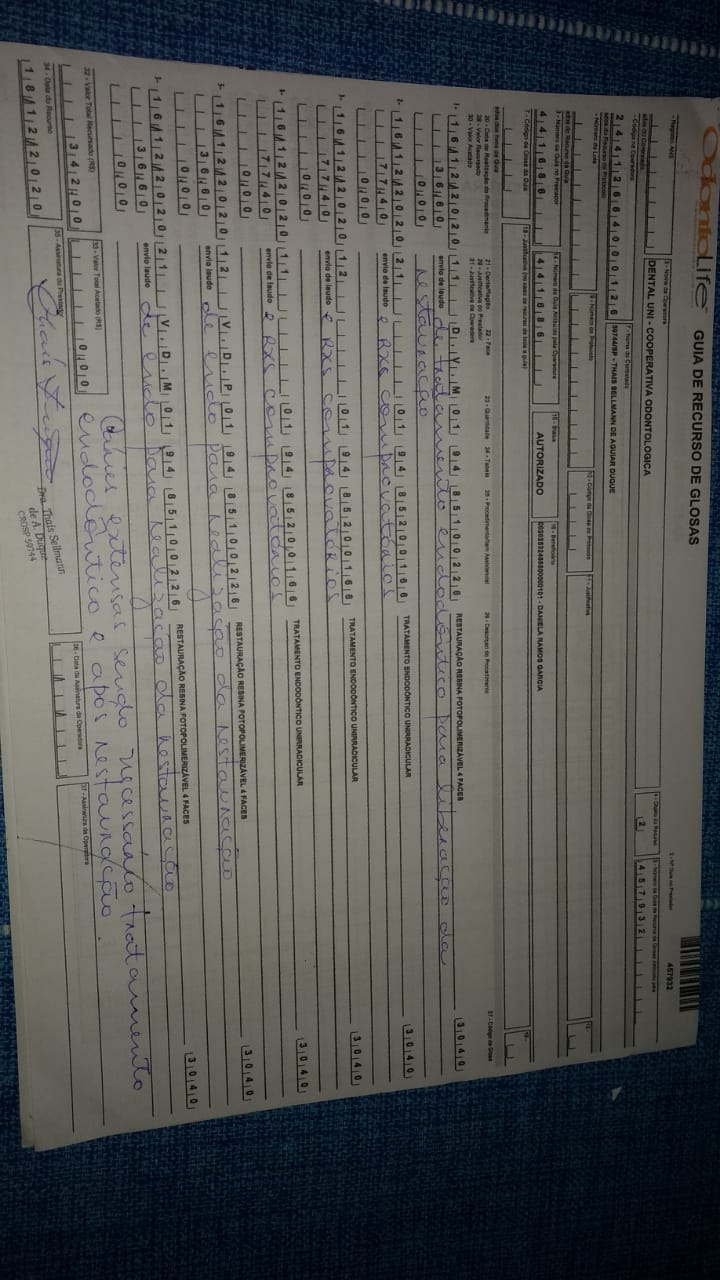 OdontoLife
GUIA DE RECURSO DE GLOSAS
2 - Nº Guia no Prestador
457932
1 - Registro ANS
3 - Nome da Operadora
DENTAL UNI - COOPERATIVA ODONTOLOGICA
4 - Objeto do Recurso
2
4 5 7 9 3 2
7 - Nome do Contratado
2 4 4 1 2 6 6 4 0 0 0 1 2 6
59744/SP - THAIS SELLMANN DE AGUIAR DUQUE
9 - Número do Protocolo
11 - Justificativa
4 4 1 6 8 6
4 4 1 6 8 6
15 - Senha
AUTORIZADO
16 - Beneficiário
DANIELA RAMOS GARCIA
17 - Código da Glosa da Guia
20 - Data de Realização do Procedimento
21 - Dente/Região
22 - Face
23 - Quantidade
24 - Tabela
25 - Procedimento/Item Assistencial
26 - Descrição do Procedimento
27 - Código da Glosa
28 - Valor Recursado
29 - Justificativa do Prestador
30 - Valor Acatado
31 - Justificativa da Operadora
1 6 / 1 2 / 2 0 2 0 1 1 D V M 0 1 9 4 8 5 1 0 0 2 2 6 RESTAURAÇÃO RESINA FOTOPOLIMERIZÁVEL 4 FACES 3 0 4 0
3 6 6 0 envio de laudo de tratamento endodôntico para liberação da
0 0 0 restauração
1 6 / 1 2 / 2 0 2 0 2 1 0 1 9 4 8 5 2 0 0 1 6 6 TRATAMENTO ENDODÔNTICO UNIRRADICULAR 3 0 4 0
7 7 4 0 envio de laudo e RXs comprovatórios
0 0 0
1 6 / 1 2 / 2 0 2 0 1 2 0 1 9 4 8 5 2 0 0 1 6 6 TRATAMENTO ENDODÔNTICO UNIRRADICULAR 3 0 4 0
7 7 4 0 envio de laudo e RXs comprovatórios
0 0 0
1 6 / 1 2 / 2 0 2 0 1 1 0 1 9 4 8 5 2 0 0 1 6 6 TRATAMENTO ENDODÔNTICO UNIRRADICULAR 3 0 4 0
7 7 4 0 envio de laudo e RXs comprovatórios
0 0 0
1 6 / 1 2 / 2 0 2 0 1 2 V D P 0 1 9 4 8 5 1 0 0 2 2 6 RESTAURAÇÃO RESINA FOTOPOLIMERIZÁVEL 4 FACES 3 0 4 0
3 6 6 0 envio de laudo de endo para realização da restauração
0 0 0
1 6 / 1 2 / 2 0 2 0 2 1 V D M 0 1 9 4 8 5 1 0 0 2 2 6 RESTAURAÇÃO RESINA FOTOPOLIMERIZÁVEL 4 FACES 3 0 4 0
3 6 6 0 envio de laudo de endo para realização da restauração
0 0 0
Cáries extensas sendo necessário tratamento
endodôntico e após restauração.
32 - Valor Total Recursado (R$)
3 4 2 0 0
33 - Valor Total Acatado (R$)
0 0 0
34 - Data do Recurso
1 8 / 1 2 / 2 0 2 0
35 - Assinatura do Prestador
Dra. Thais Sellmann
de A. Duque
CROSP 59744
36 - Data da Assinatura da Operadora
37 - Assinatura da Operadora